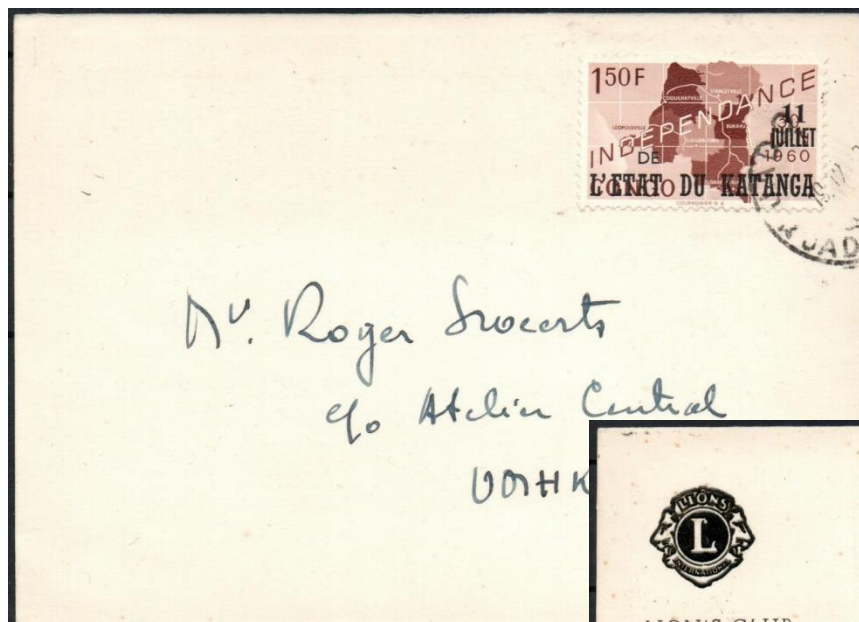 1.50F
COQUILHATVILLE
STANLEYVILLE
LEOPOLDVILLE
BUKAVU
INDEPENDANCE
11
JUILLET
1960
DE
L'ETAT DU KATANGA
CONGO
COURVOISIER S.A.
JAD
Mr. Roger
c/o Atelier Central
UMHK
LIONS
L
INTERNATIONAL
LION'S CLUB